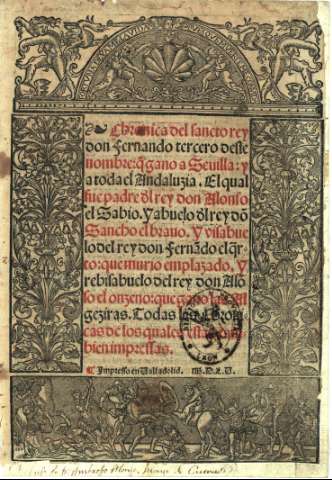 Chronica del sancto rey
don Fernando tercero deste
nombre: q̃ gano a Seuilla: y
a toda el Andaluzia. El qual
fue padre d̃l rey don Alonso
el Sabio. Y abuelo d̃l rey dõ
Sancho el brauo. Y visabue
lo del rey don Fernãdo el q̃r
to: que murio emplazado. Y
rebisabuelo del rey don Alõ
so el onzeno: que gano las Al
geziras. Todas las Chroni
cas de los quales estan
bien impressas.
¶ Impresso en Valladolid. M.D.L.V.
LEON